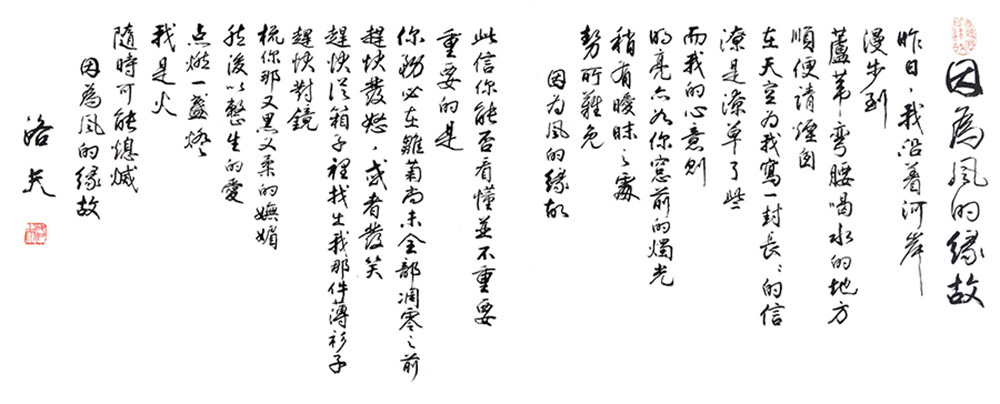 因為風的緣故
昨日，我沿着河岸
漫步到
蘆葦彎腰喝水的地方
順便請煙囱
在天空為我寫一封長長的信
潦是潦草了些
而我的心意則
明亮亦如你窗前的燭光
稍有曖昧之處
勢所難免
因為風的緣故
此信你能否看懂並不重要
重要的是
你務必在雛菊尚未全部凋零之前
趕快發怒，或者發笑
趕快從箱子裡找出我那件薄衫子
趕快對鏡
梳你那又黑又柔的嫵媚
然後以整生的愛
点燃一盞燈
我是火
隨時可能熄滅
因為風的緣故
洛夫